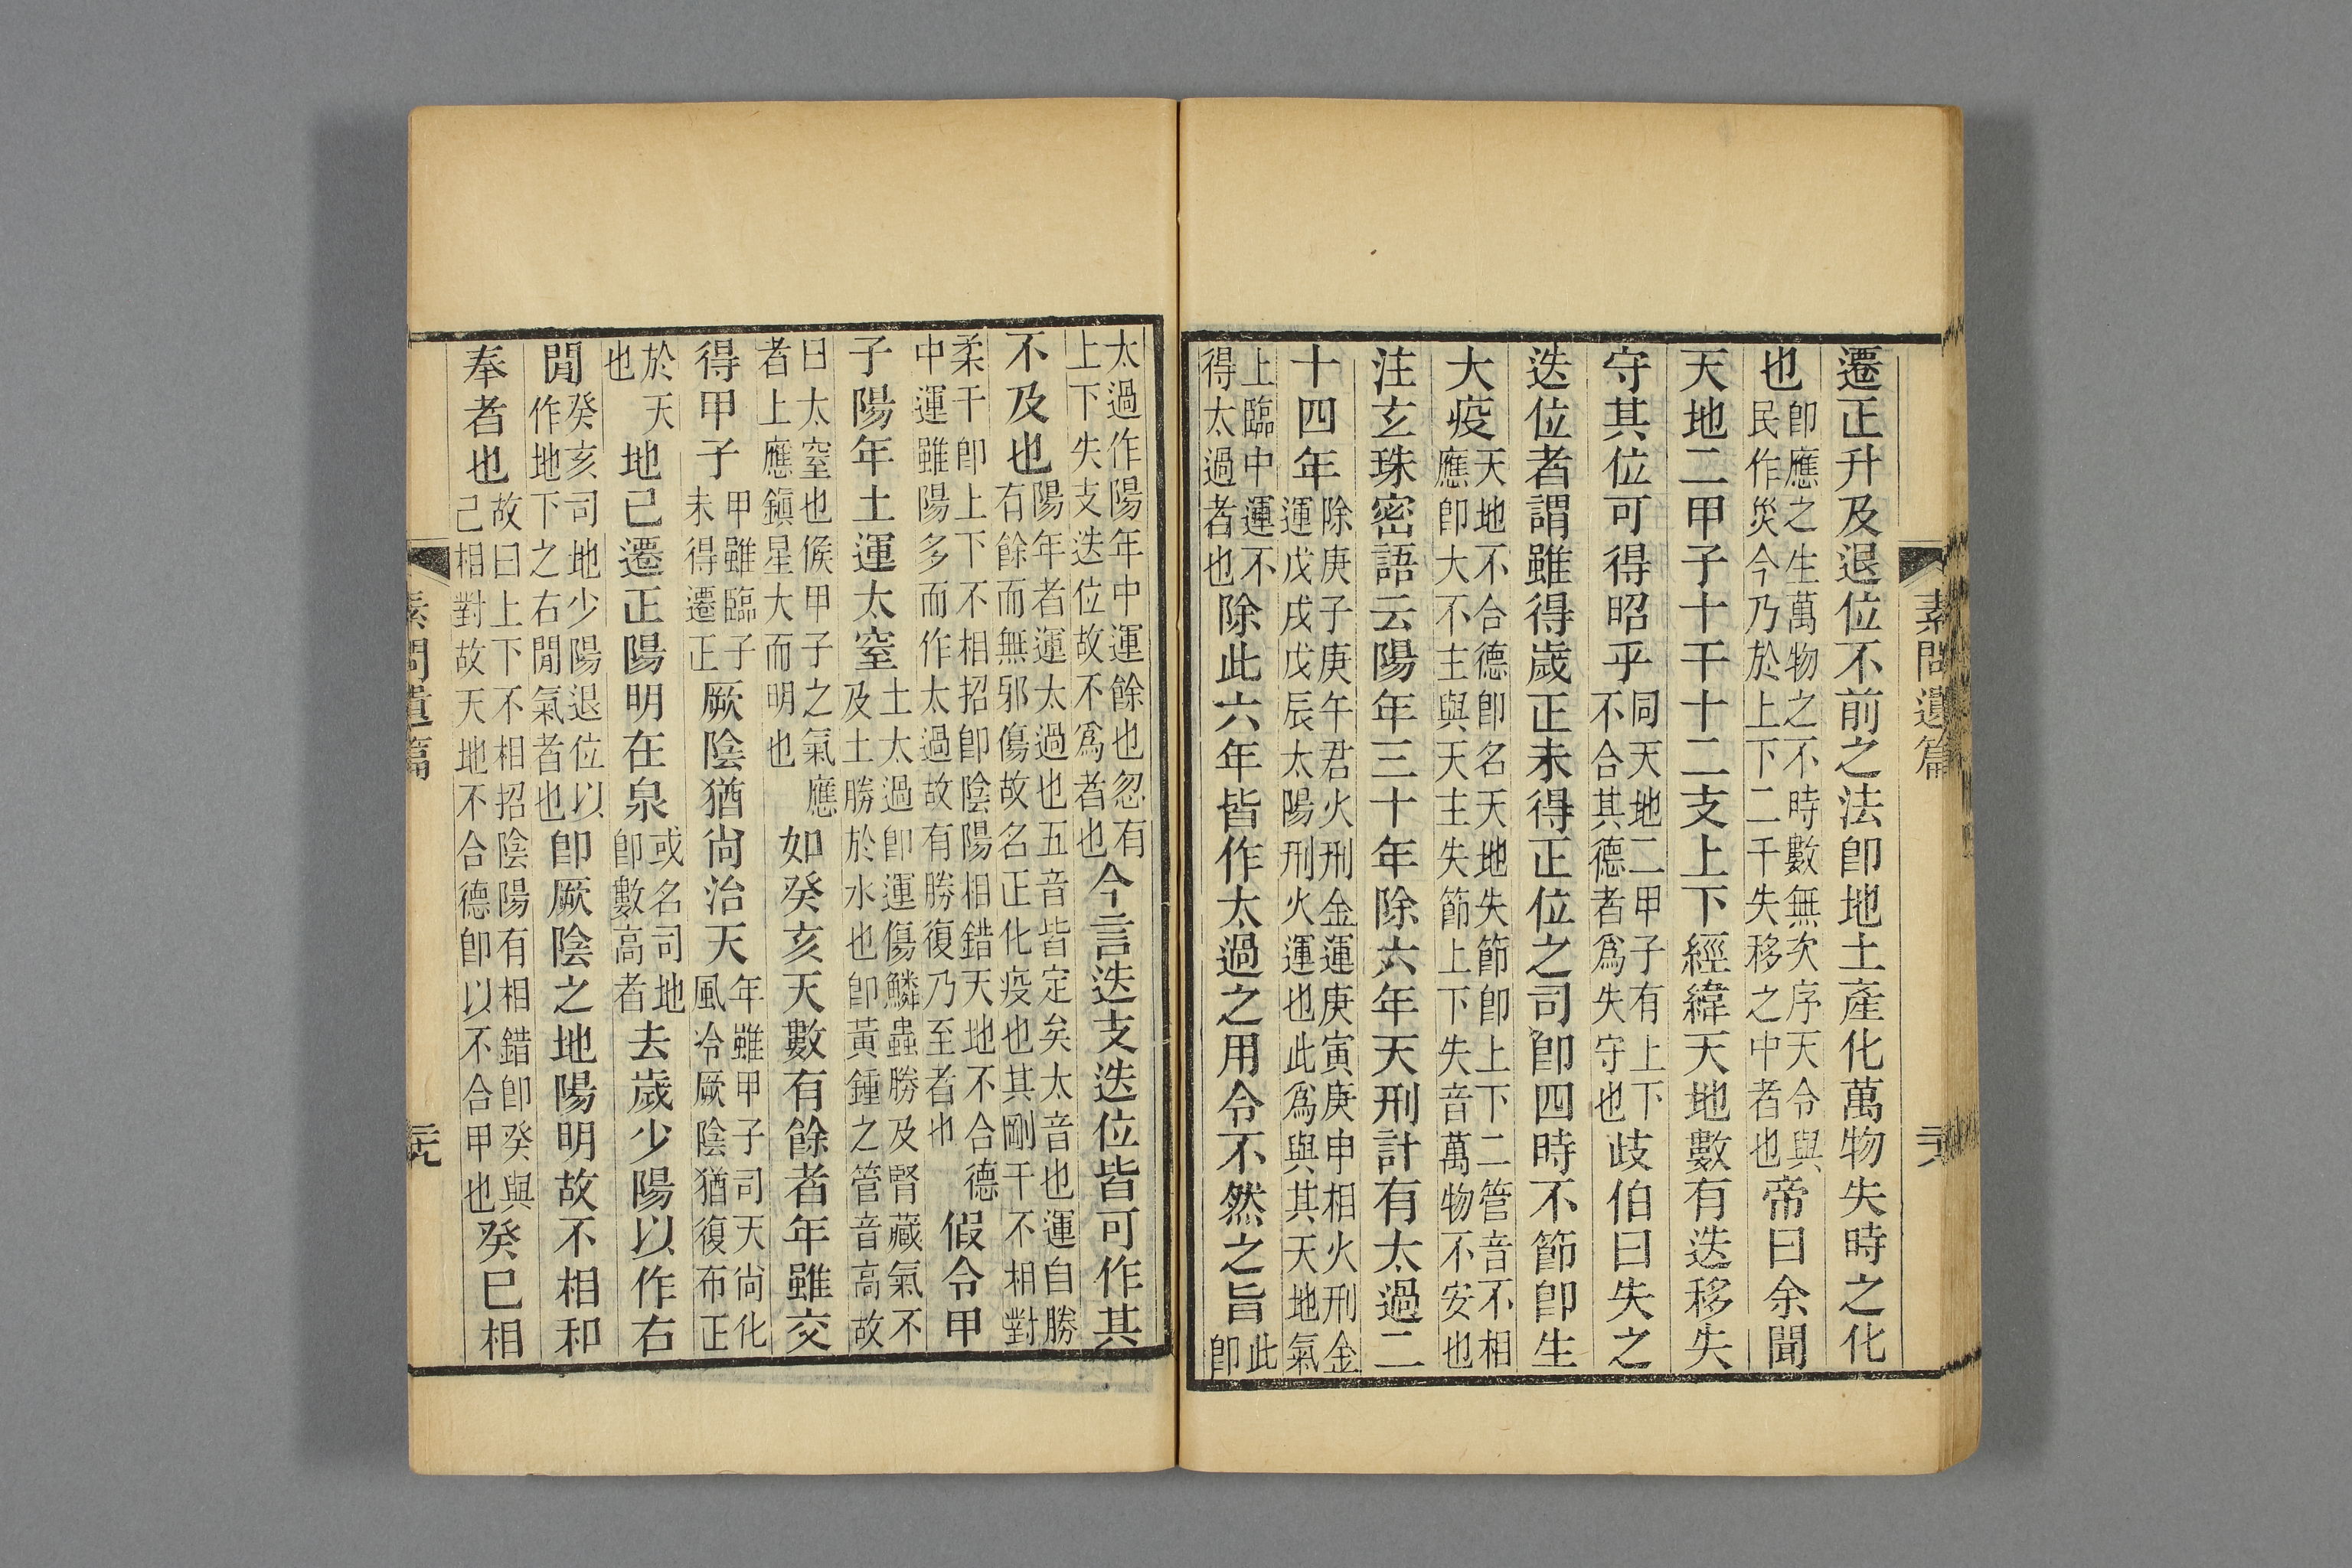 素問遺篇
遷正升及退位不前之法卽地土產化萬物失時之化
也卽應之生萬物之不時數無次序天令與民作災今乃於上下二干失移之中者也帝曰余聞
天地二甲子十干十二支上下經緯天地數有迭移失
守其位可得昭乎同天地二甲子有上下不合其德者爲失守也歧伯曰失之
迭位者謂雖得歲正未得正位之司卽四時不節卽生
大疫天地不合德卽名天地失節卽上下二管音不相應卽大不主與天主失節上下失音萬物不安也
注玄珠密語云陽年三十年除六年天刑計有太過二
十四年除庚子庚午君火刑金運庚寅庚申相火刑金運戊戌戊辰太陽刑火運也此爲與其天地氣
上臨中運不得太過者也除此六年皆作太過之用令不然之旨此卽
太過作陽年中運餘也忽有上下失支迭位故不爲者也今言迭支迭位皆可作其
不及也陽年者運太過也五音皆定矣太音也運自勝有餘而無邪傷故名正化疫也其剛干不相對
柔干卽上下不相招卽陰陽相錯天地不合德中運雖陽多而作太過故有勝復乃至者也假令甲
子陽年土運太窒土太過卽運傷鱗蟲勝及腎藏氣不及土勝於水也卽黃鍾之管音高故
曰太窒也候甲子之氣應者上應鎭星大而明也如癸亥天數有餘者年雖交
得甲子甲雖臨子未得遷正厥陰猶尙治天年雖甲子司天尙化風冷厥陰猶復布正
於天也地已遷正陽明在泉或名司地卽數高者去歲少陽以作右
閒癸亥司地少陽退位以作地下之右閒氣者也卽厥陰之地陽明故不相和
奉者也故曰上下不相招陰陽有相錯卽癸與己相對故天地不合德卽以不合甲也癸巳相
素問遺篇